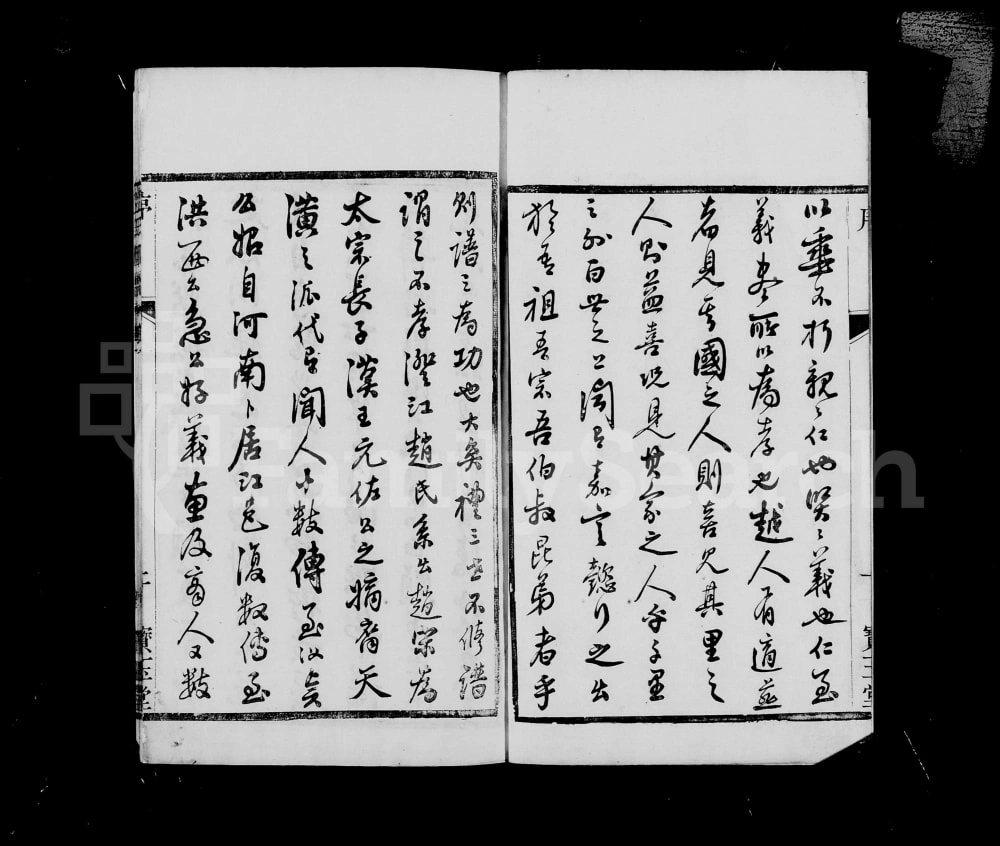 以乖不忻親親仁也賢賢義也仁至
義盡所以為孝也越人有適燕
者見其國之人則喜見其里之
人則益喜況見其家之人乎千里
之外百世之上聞有嘉言懿行之出
於吾祖吾宗吾伯叔昆弟者乎
序
寶玉堂
則譜之為功也大矣禮三世不修譜
謂之不孝澄江趙氏系出趙宋為
太宗長子漢王元佐公之嫡裔天
潢之派代有聞人十數傳至汝
公始自河南卜居江邑復數傳至
洪公急公好義惠及窮人又數
序
寶玉堂
FamilySearch